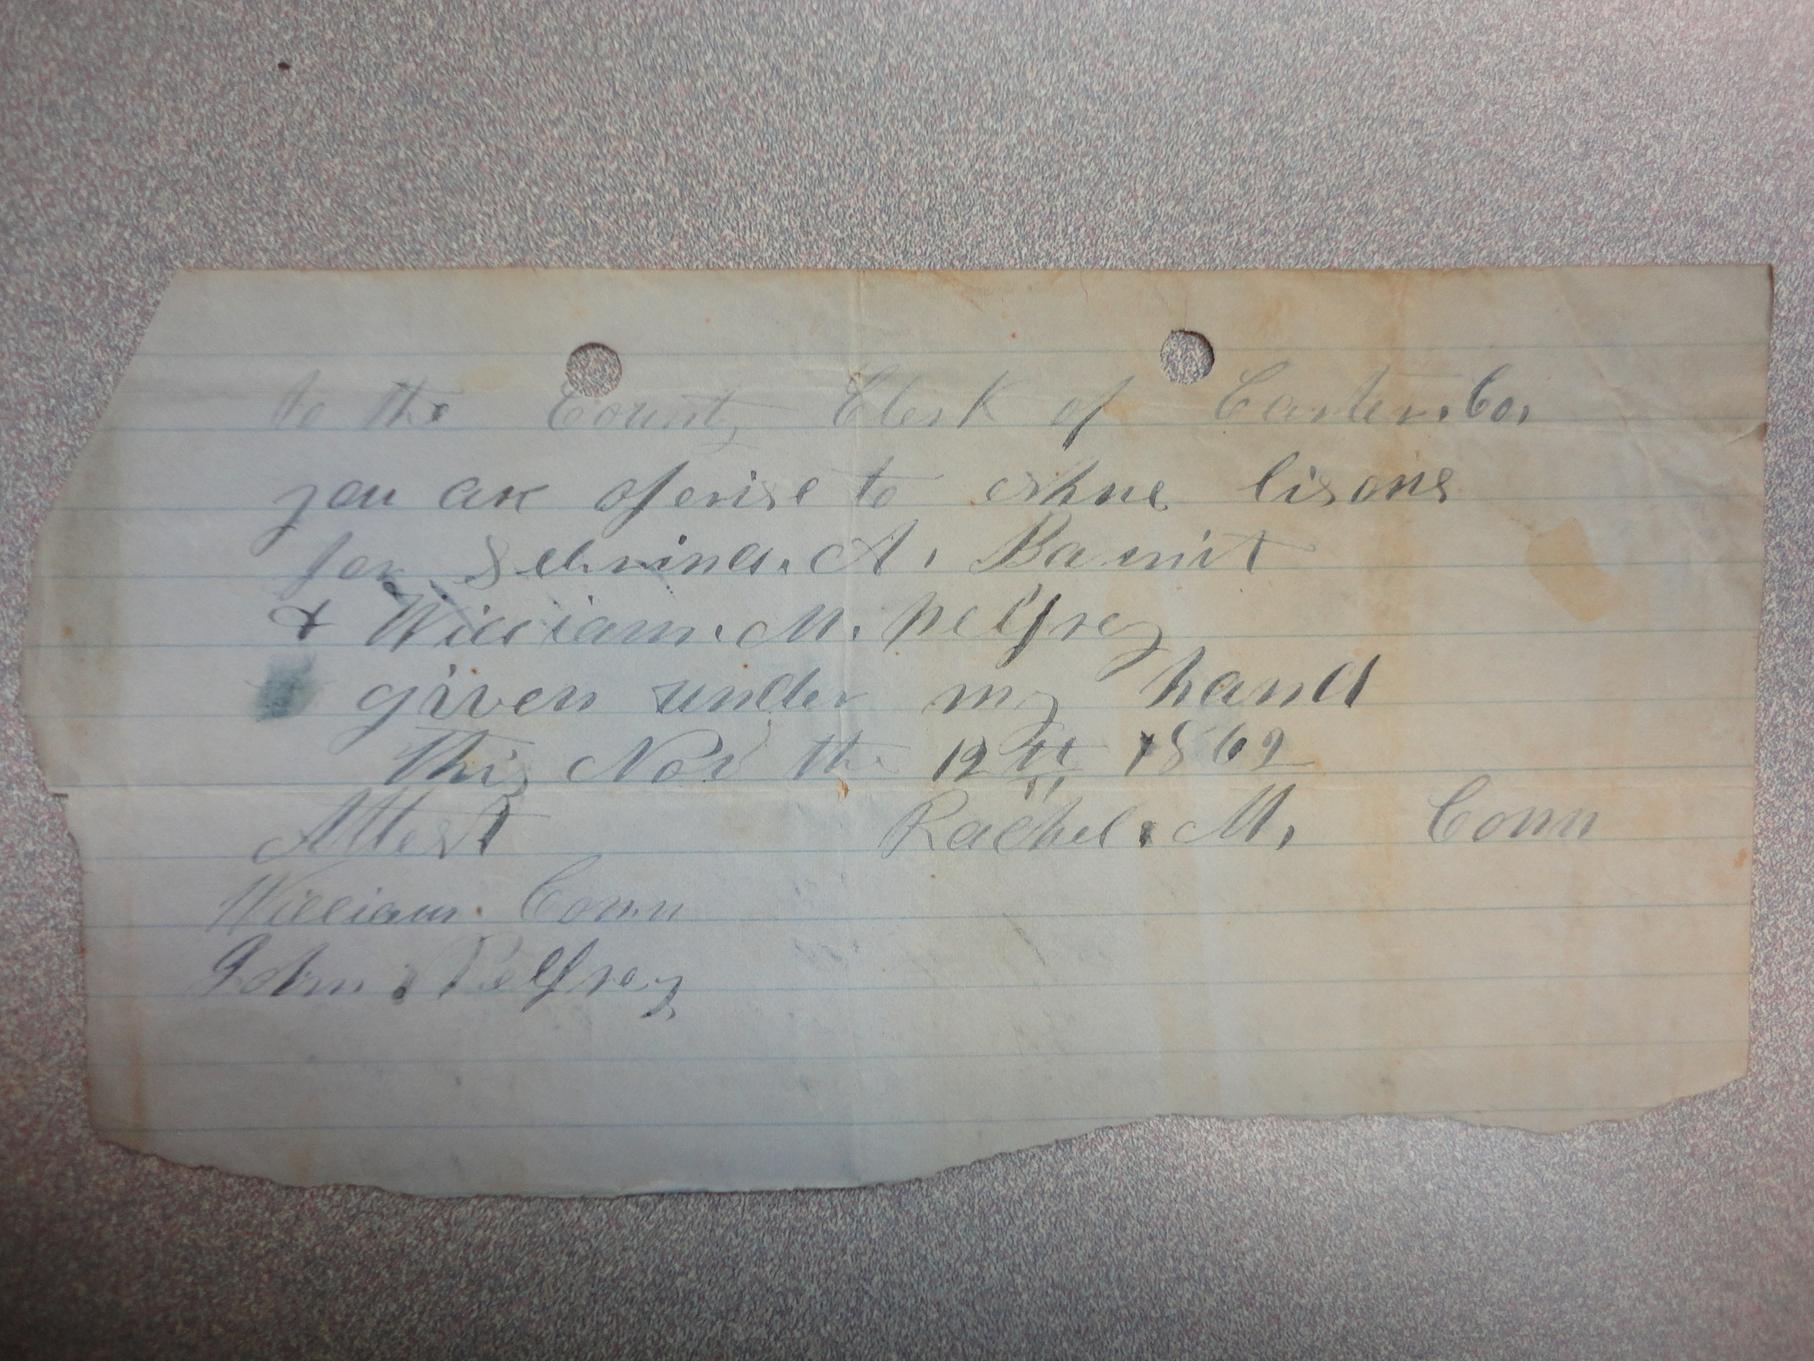 to the County Clerk of Carter. Co,
you are to lisons
for A. Barnit
& William. M. Pelfrey
given under my hand
this Nov the 12 tt 1869
Attest Rachel. M, Conn
William. Conn
John. Pelfrey